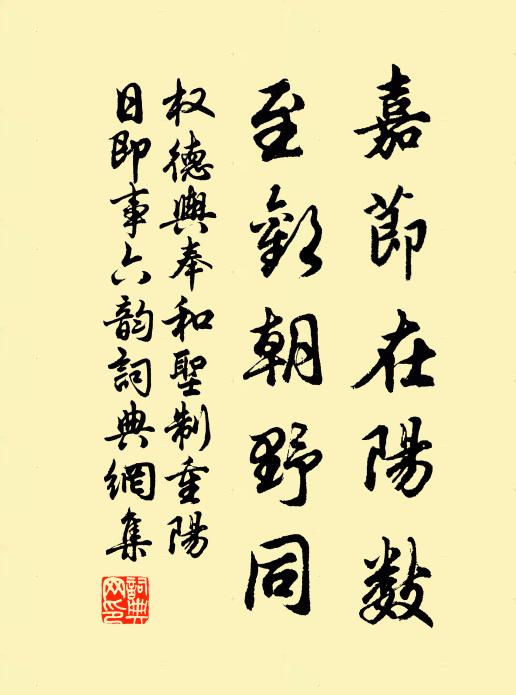 嘉節在陽數
至歡朝野同
权德輿奉和聖制重陽
日即事六韵詞典網集